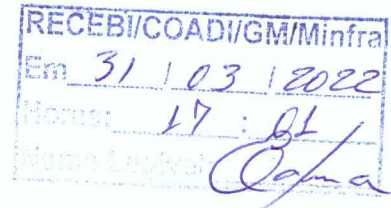 RECEBI/COADI/GM/Minfra
Em 31 / 03 / 2022
Horas: 17 :
Nome Legível: